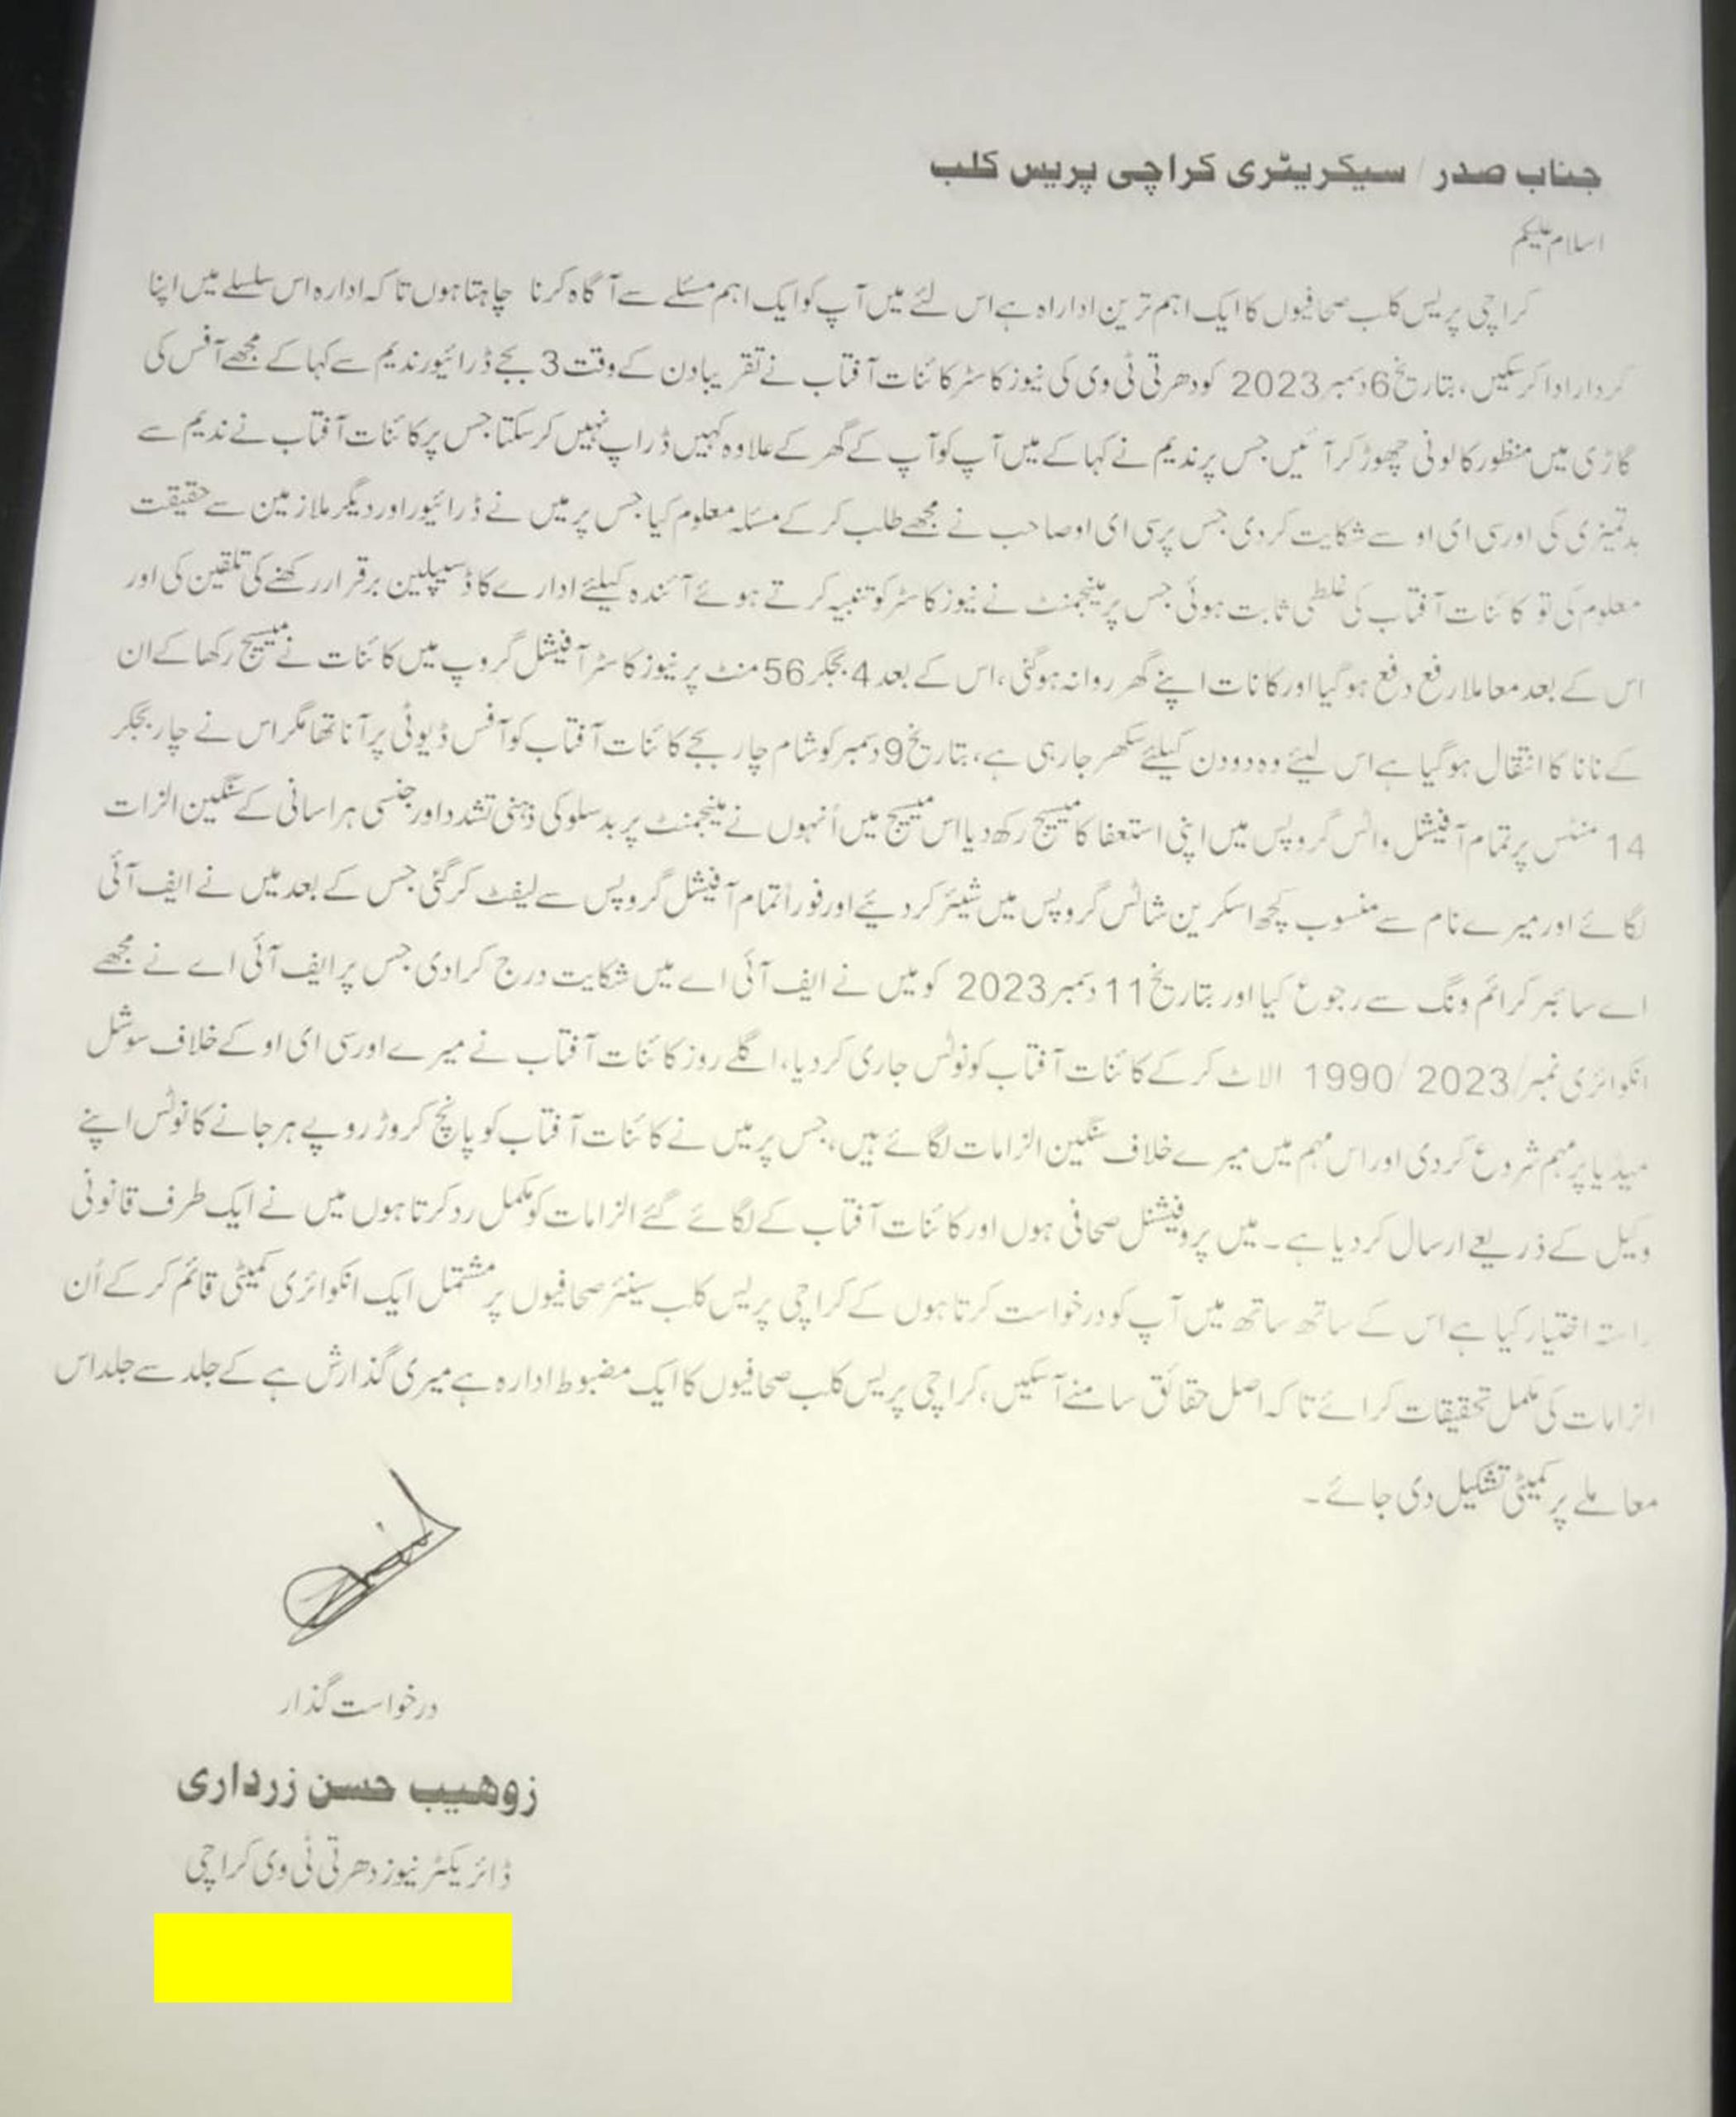 جناب صدر / سیکریٹری کراچی پریس کلب
اسلام علیکم
کراچی پریس کلب صحافیوں کا ایک اہم ترین اداراہ ہے اس لئے میں آپ کو ایک اہم مسئلے سے آگاہ کرنا چاہتا ہوں تا کہ ادارہ اس سلسلے میں اپنا
کردار ادا کرسکیں، بتاریخ 6 دسمبر 2023 کو دھرتی ٹی وی کی نیوز کاسٹر کائنات آفتاب نے تقریبا دن کے وقت 3 بجے ڈرائیور ندیم سے کہا کے مجھے آفس کی
گاڑی میں منظور کالونی چھوڑ کر آئیں جس پر ندیم نے کہا کے میں آپ کو آپ کے گھر کے علاوہ کہیں ڈراپ نہیں کرسکتا جس پر کائنات آفتاب نے ندیم سے
بدتمیزی کی اور سی ای او سے شکایت کردی جس پر سی ای او صاحب نے مجھے طلب کر کے مسئلہ معلوم کیا جس پر میں نے ڈرائیور اور دیگر ملازمین سے حقیقت
معلوم کی تو کائنات آفتاب کی غلطی ثابت ہوئی جس پر مینجمنٹ نے نیوز کاسٹر کو تنبیہ کرتے ہوئے آئندہ کیلئے ادارے کا ڈسیپلین برقرار رکھنے کی تلقین کی اور
اس کے بعد معاملا رفع دفع ہوگیا اور کانات اپنے گھر روانہ ہوگئی، اس کے بعد 4 بجکر 56 منٹ پر نیوز کاسٹر آفیشل گروپ میں کائنات نے میسیج رکھا کے ان
کے نانا کا انتقال ہوگیا ہے اس لیئے وہ دو دن کیلئے سکھر جارہی ہے، بتاریخ 9 دسمبر کو شام چار بجے کائنات آفتاب کو آفس ڈیوٹی پر آنا تھا مگر اس نے چار بجکر
14 منٹس پر تمام آفیشل واٹس گروپس میں اپنی استعفا کا میسیج رکھ دیا اس میسیج میں اُنہوں نے مینجمنٹ پر بدسلوکی ذہنی تشدد اور جنسی ہراسانی کے سنگین الزات
لگائے اور میرے نام سے منسوب کچھ اسکرین شاٹس گروپس میں شیئر کردیئے اور فوراً تمام آفیشل گروپس سے لیفٹ کرگئی جس کے بعد میں نے ایف آئی
اے سائبر کرائم ونگ سے رجوع کیا اور بتاریخ 11 دسمبر 2023 کو میں نے ایف آئی اے میں شکایت درج کرادی جس پر ایف آئی اے نے مجھے
انکوائری نمبر/ 2023 / 1990 الاٹ کرکے کائنات آفتاب کو نوٹس جاری کردیا، اگلے روز کائنات آفتاب نے میرے اور سی ای او کے خلاف سوشل
میڈیا پر مہم شروع کردی اور اس مہم میں میرے خلاف سنگین الزامات لگائے ہیں، جس پر میں نے کائنات آفتاب کو پانچ کروڑ روپے ہرجانے کا نوٹس اپنے
وکیل کے ذریعے ارسال کردیا ہے۔ میں پروفیشنل صحافی ہوں اور کائنات آفتاب کے لگائے گئے الزامات کو مکمل رد کرتا ہوں میں نے ایک طرف قانونی
راستہ اختیار کیا ہے اس کے ساتھ ساتھ میں آپ کو درخواست کرتا ہوں کے کراچی پریس کلب سینئر صحافیوں پر مشتمل ایک انکوائری کمیٹی قائم کر کے اُن
الزامات کی مکمل تحقیقات کرائے تا کہ اصل حقائق سامنے آسکیں، کراچی پریس کلب صحافیوں کا ایک مضبوط ادارہ ہے میری گذارش ہے کے جلد سے جلد اس
معاملے پر کمیٹی تشکیل دی جائے۔
درخواست گذار
زوھیب حسن زرداری
ڈائریکٹر نیوز دھرتی ٹی وی کراچی